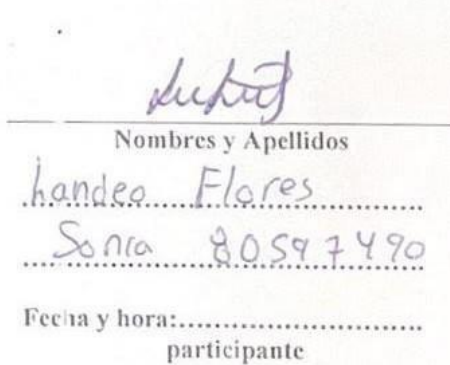 Nombres y Apellidos
Landeo Flores
Sonia 80597490
Fecha y hora:...............................
participante